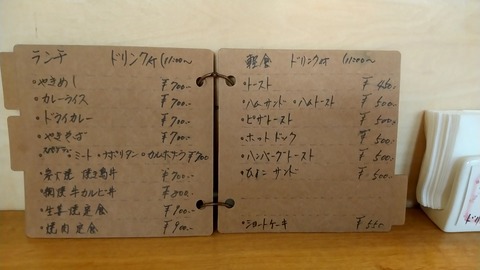 ランチ ドリンク付 (11:00〜
・やきめし ¥700.-
・カレーライス ¥700.-
・ドライカレー ¥700.-
・やきそば ¥700.-
・ミート・ナポリタン・カルボナーラ ¥700
・炭火焼 焼き鳥丼 ¥700.-
・焼牛カルビ丼 ¥800.-
・生姜焼定食 ¥900.-
・焼肉定食 ¥900.-
軽食 ドリンク付 (11:00〜
・トースト ¥450.-
・ハムサンド・ハムトースト ¥500.-
・ピザトースト ¥500.-
・ホットドック ¥500.-
・ハンバーグトースト ¥500.-
・サンド ¥500.-
・ショートケーキ